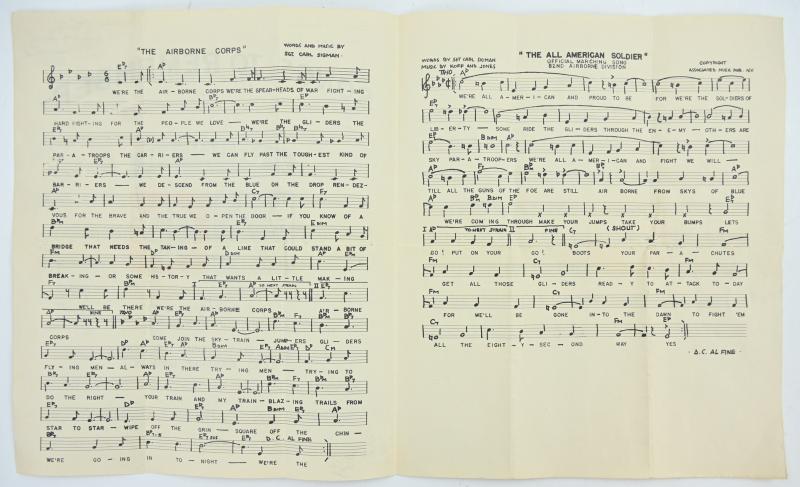 "THE AIRBORNE CORPS"
WORDS AND MUSIC BY
SGT. CARL SIGMAN
WE'RE THE AIR-BORNE CORPS WE'RE THE SPEAR-HEADS OF WAR FIGHT-ING
HARD FIGHT-ING FOR THE PEO-PLE WE LOVE — WE'RE THE GLI-DERS THE
PAR-A-TROOPS THE CAR-RI-ERS — WE CAN FLY PAST THE TOUGH-EST KIND OF
BAR-RI-ERS — WE DE-SCEND FROM THE BLUE ON THE DROP REN-DEZ-
VOUS FOR THE BRAVE AND THE TRUE WE O-PEN THE DOOR — IF YOU KNOW OF A
BRIDGE THAT NEEDS THE TAK-ING-OF A LINE THAT COULD STAND A BIT OF
BREAK-ING — OR SOME HIS-TOR-Y THAT WANTS A LIT-TLE MAK-ING
TO NEXT STRAIN
WE'LL BE THERE WE'RE THE AIR-BORNE CORPS AIR-BORNE
FINE TRIO
CORPS COME JOIN THE SKY-TRAIN-JUMP-ERS GLI-DERS
FLY-ING MEN — AL-WAYS IN THERE TRY-ING MEN — TRY-ING TO
DO THE RIGHT — YOUR TRAIN AND MY TRAIN-BLAZ-ING TRAILS FROM
STAR TO STAR-WIPE OFF THE GRIN-SQUARE OFF THE CHIN-
D.C. AL FINE
WE'RE GO-ING IN TO-NIGHT — WE'RE THE
"THE ALL AMERICAN SOLDIER"
OFFICIAL MARCHING SONG
82ND AIRBORNE DIVISION
WORDS BY SGT CARL SIGMAN
MUSIC BY KOFF AND JONES
COPYRIGHT
ASSOCIATED MUSIC PUB. N.Y.
TRIO
WE'RE ALL A-MER-I-CAN AND PROUD TO BE FOR WE'RE THE SOL-DIERS OF
LIB-ER-TY — SOME RIDE THE GLI-DERS THROUGH THE EN-E-MY — OTH-ERS ARE
SKY PAR-A-TROOP-ERS WE'RE ALL A-MER-I-CAN AND FIGHT WE WILL —
TILL ALL THE GUNS OF THE FOE ARE STILL AIR BORNE FROM SKYS OF BLUE
WE'RE COM'ING THROUGH MAKE YOUR JUMPS TAKE YOUR BUMPS LETS
I TO NEXT STRAIN II FINE (SHOUT)
GO! PUT ON YOUR GO! BOOTS YOUR PAR-A-CHUTES
GET ALL THOSE GLI-DERS READ-Y TO AT-TACK TO-DAY
FOR WE'LL BE GONE IN-TO THE DAWN TO FIGHT 'EM
ALL THE EIGHT-Y-SEC-OND WAY YES
D.C. AL FINE